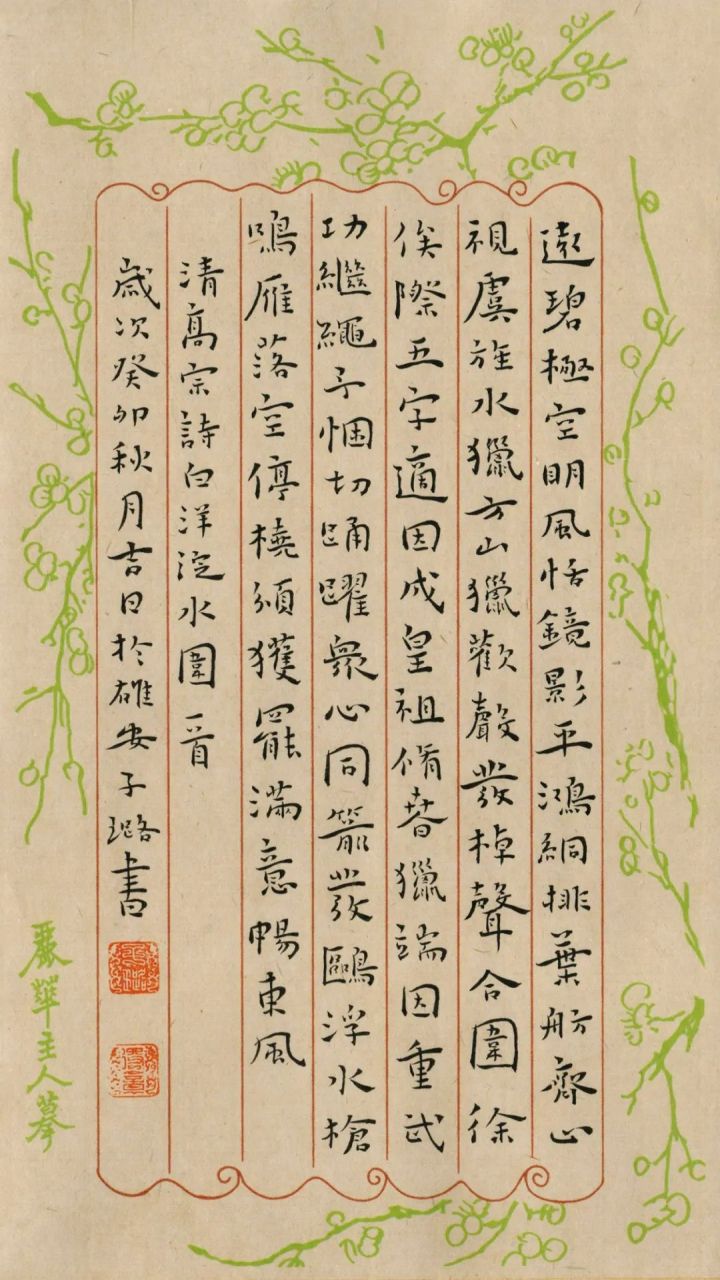 遠碧極空明風恬鏡影平鴻絅排葉舫齊心
視虞旌水獵方山獵歡聲發棹聲合圍徐
俟際五字適因成皇祖脩春獵端因重武
功繼繩予悃切踊躍衆心同箭發鷗浮水槍
鳴雁落空停橈頒獲罷滿意暢東風
清高宗詩白洋淀水圍一首
歲次癸卯秋月吉日於雄安子璐書
主人摹